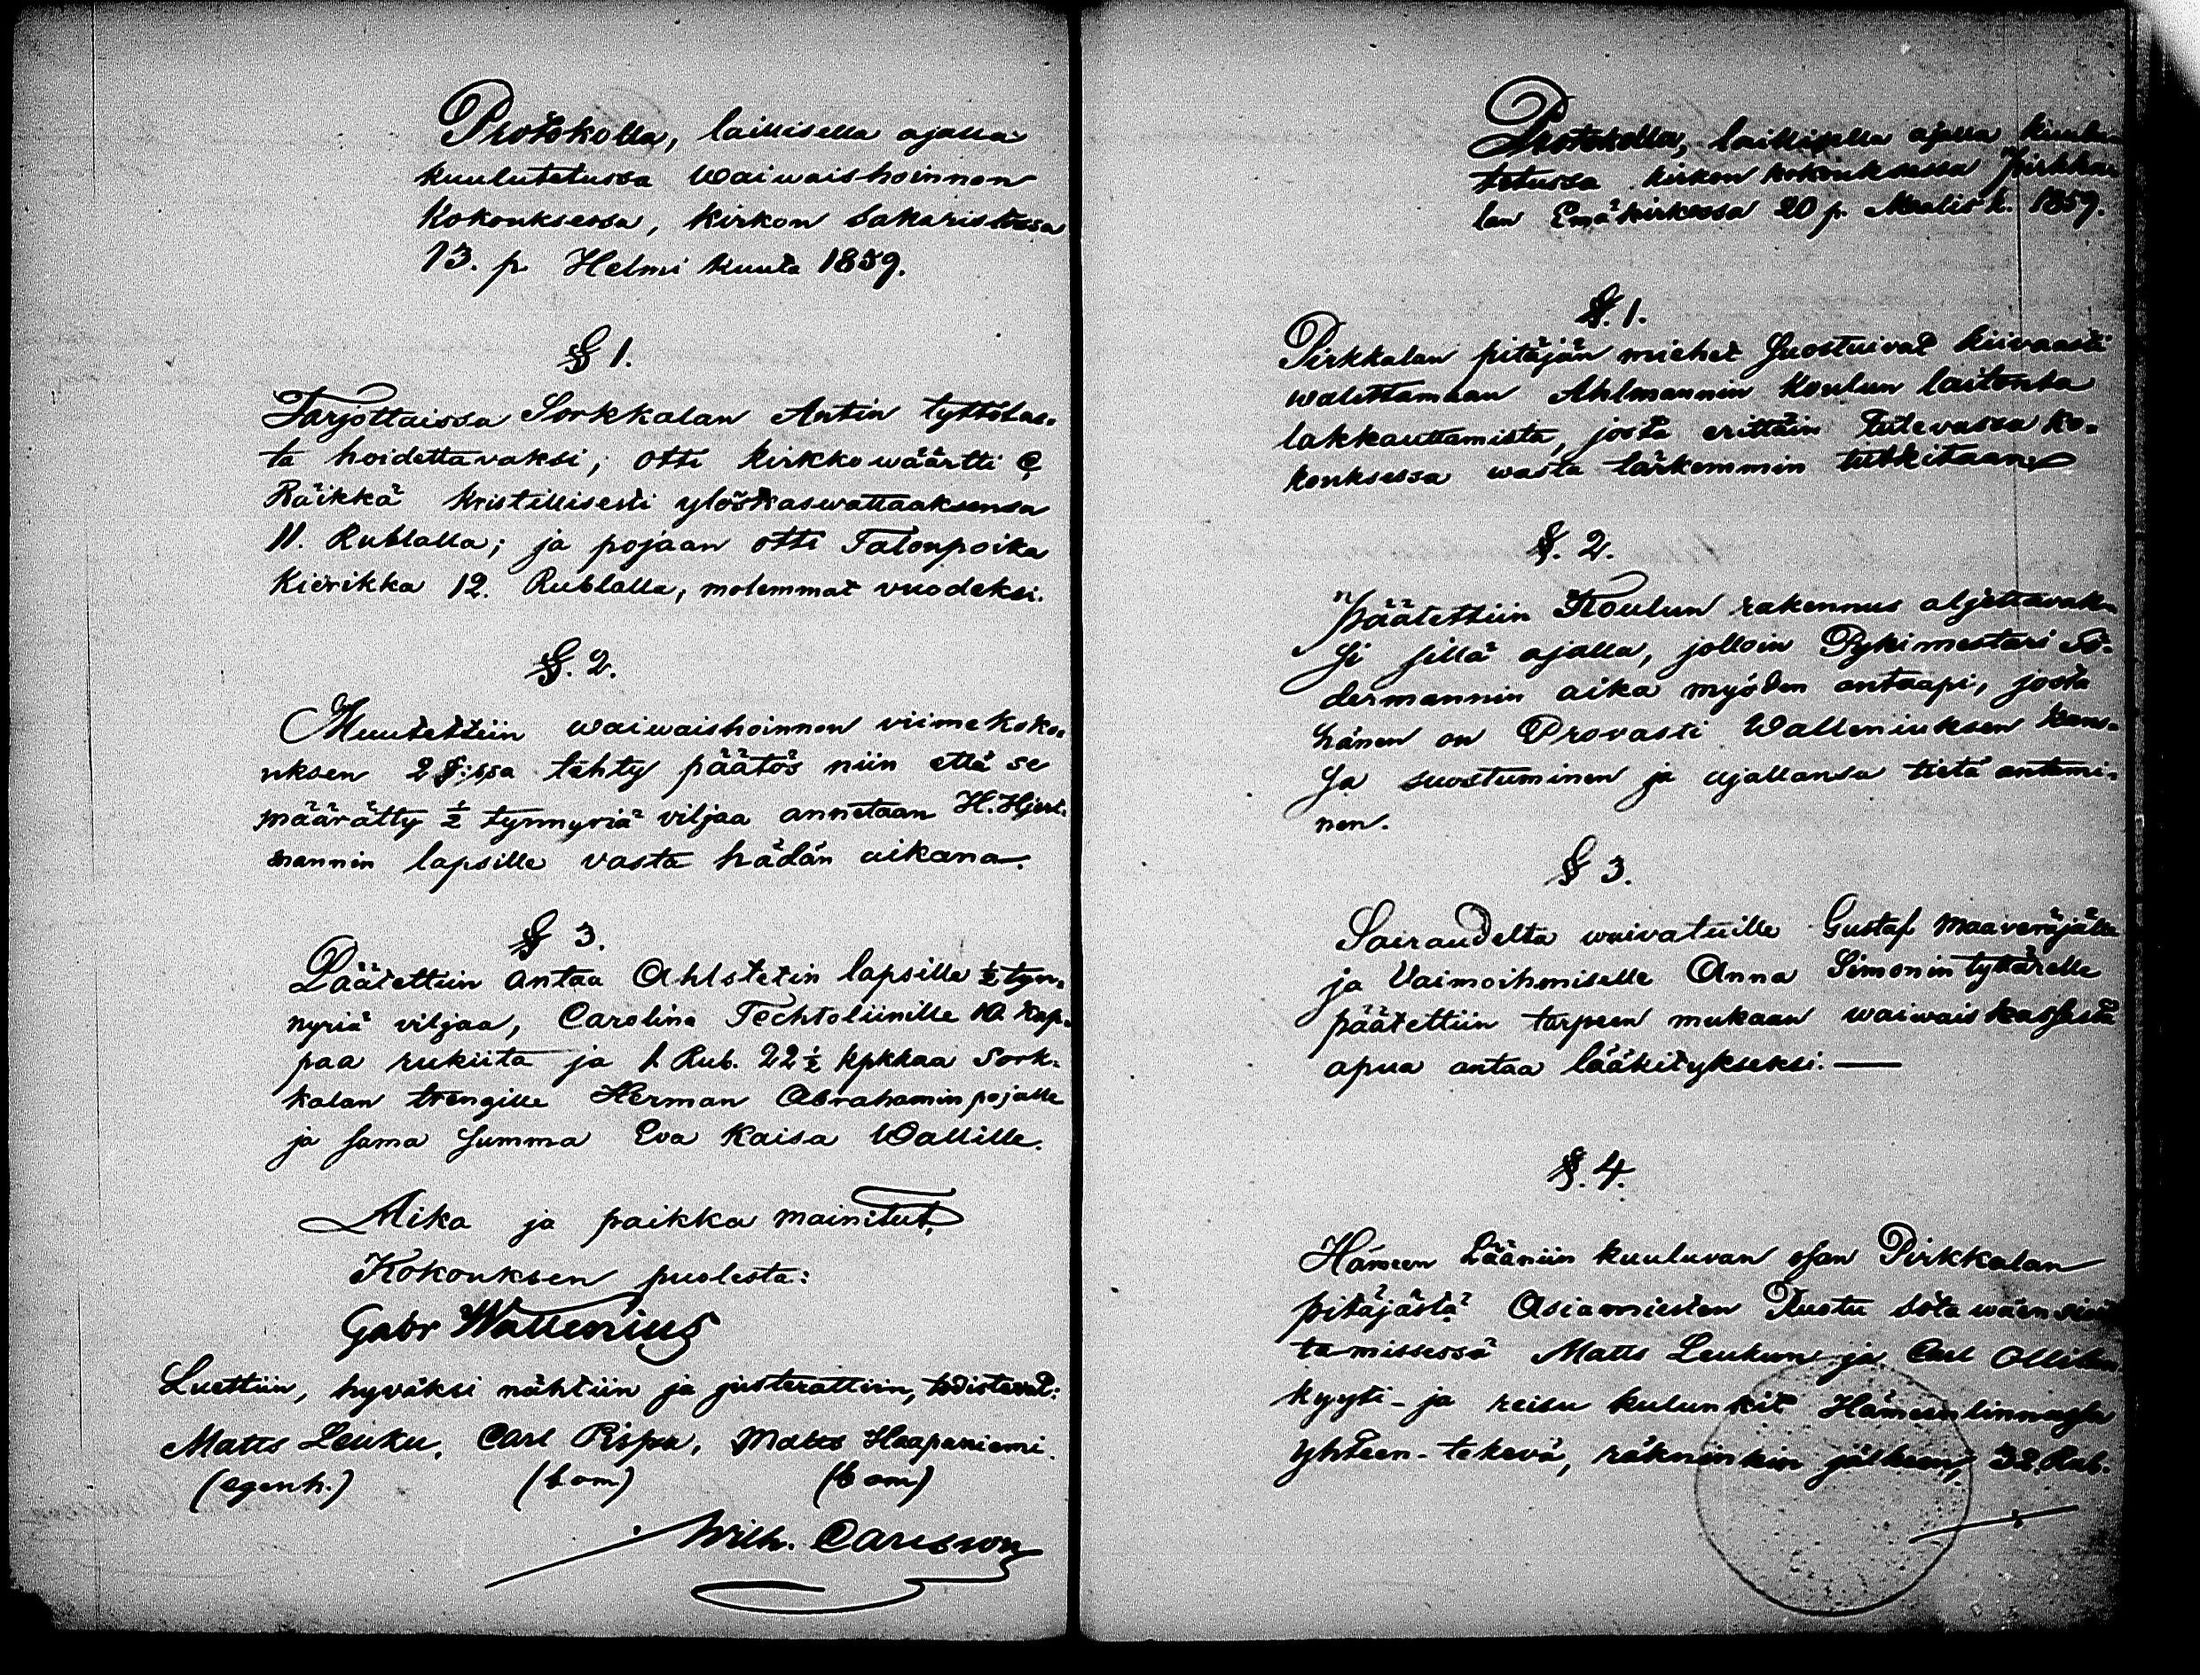 Protokolla, laillisella ajalla
kuulutetussa waiwaishoinnon
Kokouksessa, kirkon sakaristossa
13. p. Helmi kuuta 1859.
§ 1.
Tarjottaissa Sorkkalan Antin tyttölas-
ta hoidettavaksi, otti kirkkowäärtti C
Räikkä kristillisesti ylöskaswattaaksensa
11. Rublalla; ja pojaan otti Talonpoika
Kierikka 12. Rublalla, molemmat vuodeksi.
§. 2.
Muutettiin waiwaishoinnon viime koko-
uksen 2 §:ssa tehty päätös niin että se
määrätty ½ tynnyriä viljaa annetaan H. Hjert-
mannin lapsille vasta hädän aikana.
§ 3.
Päätettiin antaa Ahlstetin lapsille ½ tyn-
nyriä viljaa, Carolina Techtoliinille 10 kap-
paa rukiita ja 1 Rub. 22 ½ kpkkaa Sork-
kalan trengille Herman Abrahamin pojalle
ja sama summa Eva Kaisa Wallille.
Aika ja paikka mainitut.
Kokouksen puolesta:
Gabr Wallenius
Luettiin, hyväksi nähtiin ja justerattiin, todistavat:
Matts Leuku, Carl Ripa, Matts Haapaniemi.
(egenh.) (bom) (bom)
Wilh. Carlsson
Protokolla, laillisella ajalla kuulu-
tetussa kirkon kokouksessa Pirkka-
lan Emäkirkossa 20 p. Maalis k. 1859.
§. 1.
Pirkkalan pitäjän miehet suostuivat kiivaasti
walittamaan Ahlmannin koulun laitonta
lakkauttamista, josta erittäin tulevassa ko-
kouksessa wasta tarkemmin tutkitaan
§. 2.
Päätettiin Koulun rakennus aljettavak-
si sillä ajalla, jolloin Pykimestari Sö-
dermannin aika myöden antaapi, josta
hänen on Provasti Walleniuksen kans-
sa suostuminen ja ajallansa tietä antami-
nen.
§ 3.
Sairaudelta waivatuille Gustaf Maaveräjälle
ja Vaimoihmiselle Anna Simonin tyttärelle
päätettiin tarpeen mukaan waiwais kassasta
apua antaa lääkitykseksi. —
§. 4.
Hämeen Lääniin kuuluvan osan Pirkkalan
pitäjästä Asiamiesten Ruotu sota wäen
tamisessa Matts Leukun ja Carl Ollilan
kyyti- ja reisu kulunkit Hämeenlinnaan
yhteen-tekevä, räkningin jälkeen, 32. Rub.